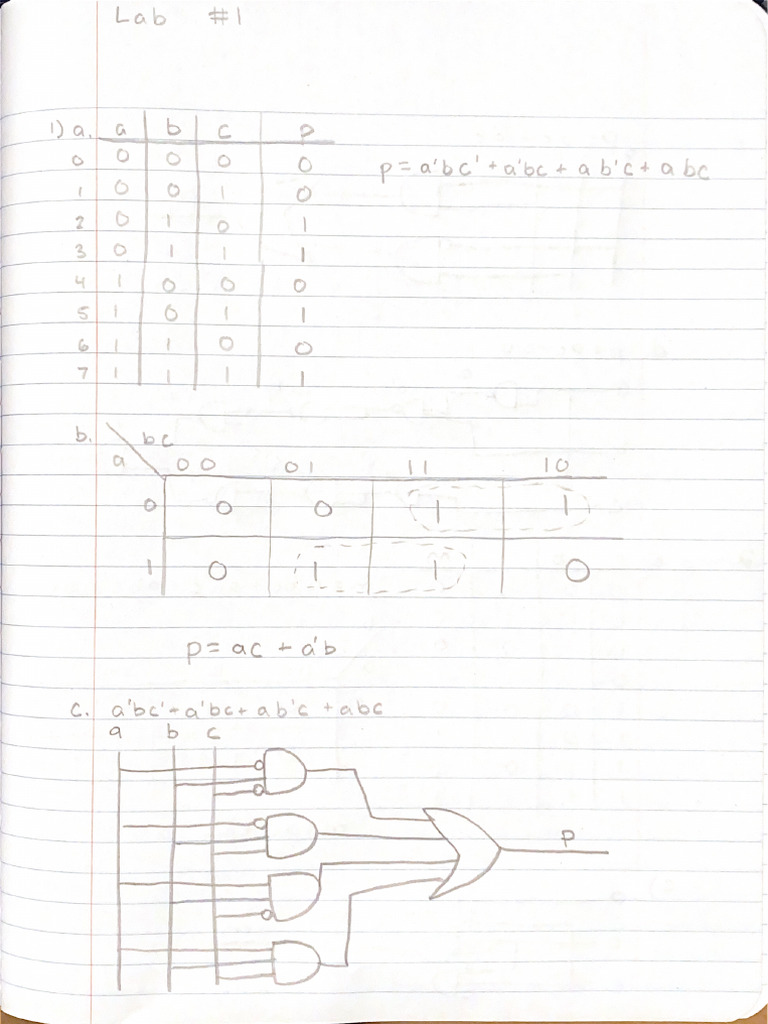 Lab #1
1) a. a b c p
0 0 0 0 0 p = a'bc' + a'bc + ab'c + abc
1 0 0 1 0
2 0 1 0 1
3 0 1 1 1
4 1 0 0 0
5 1 0 1 1
6 1 1 0 0
7 1 1 1 1
b. bc
a 00 01 11 10
0 0 0 1 1
1 0 1 1 0
p = ac + a'b
c. a'bc' + a'bc + ab'c + abc
a b c
p